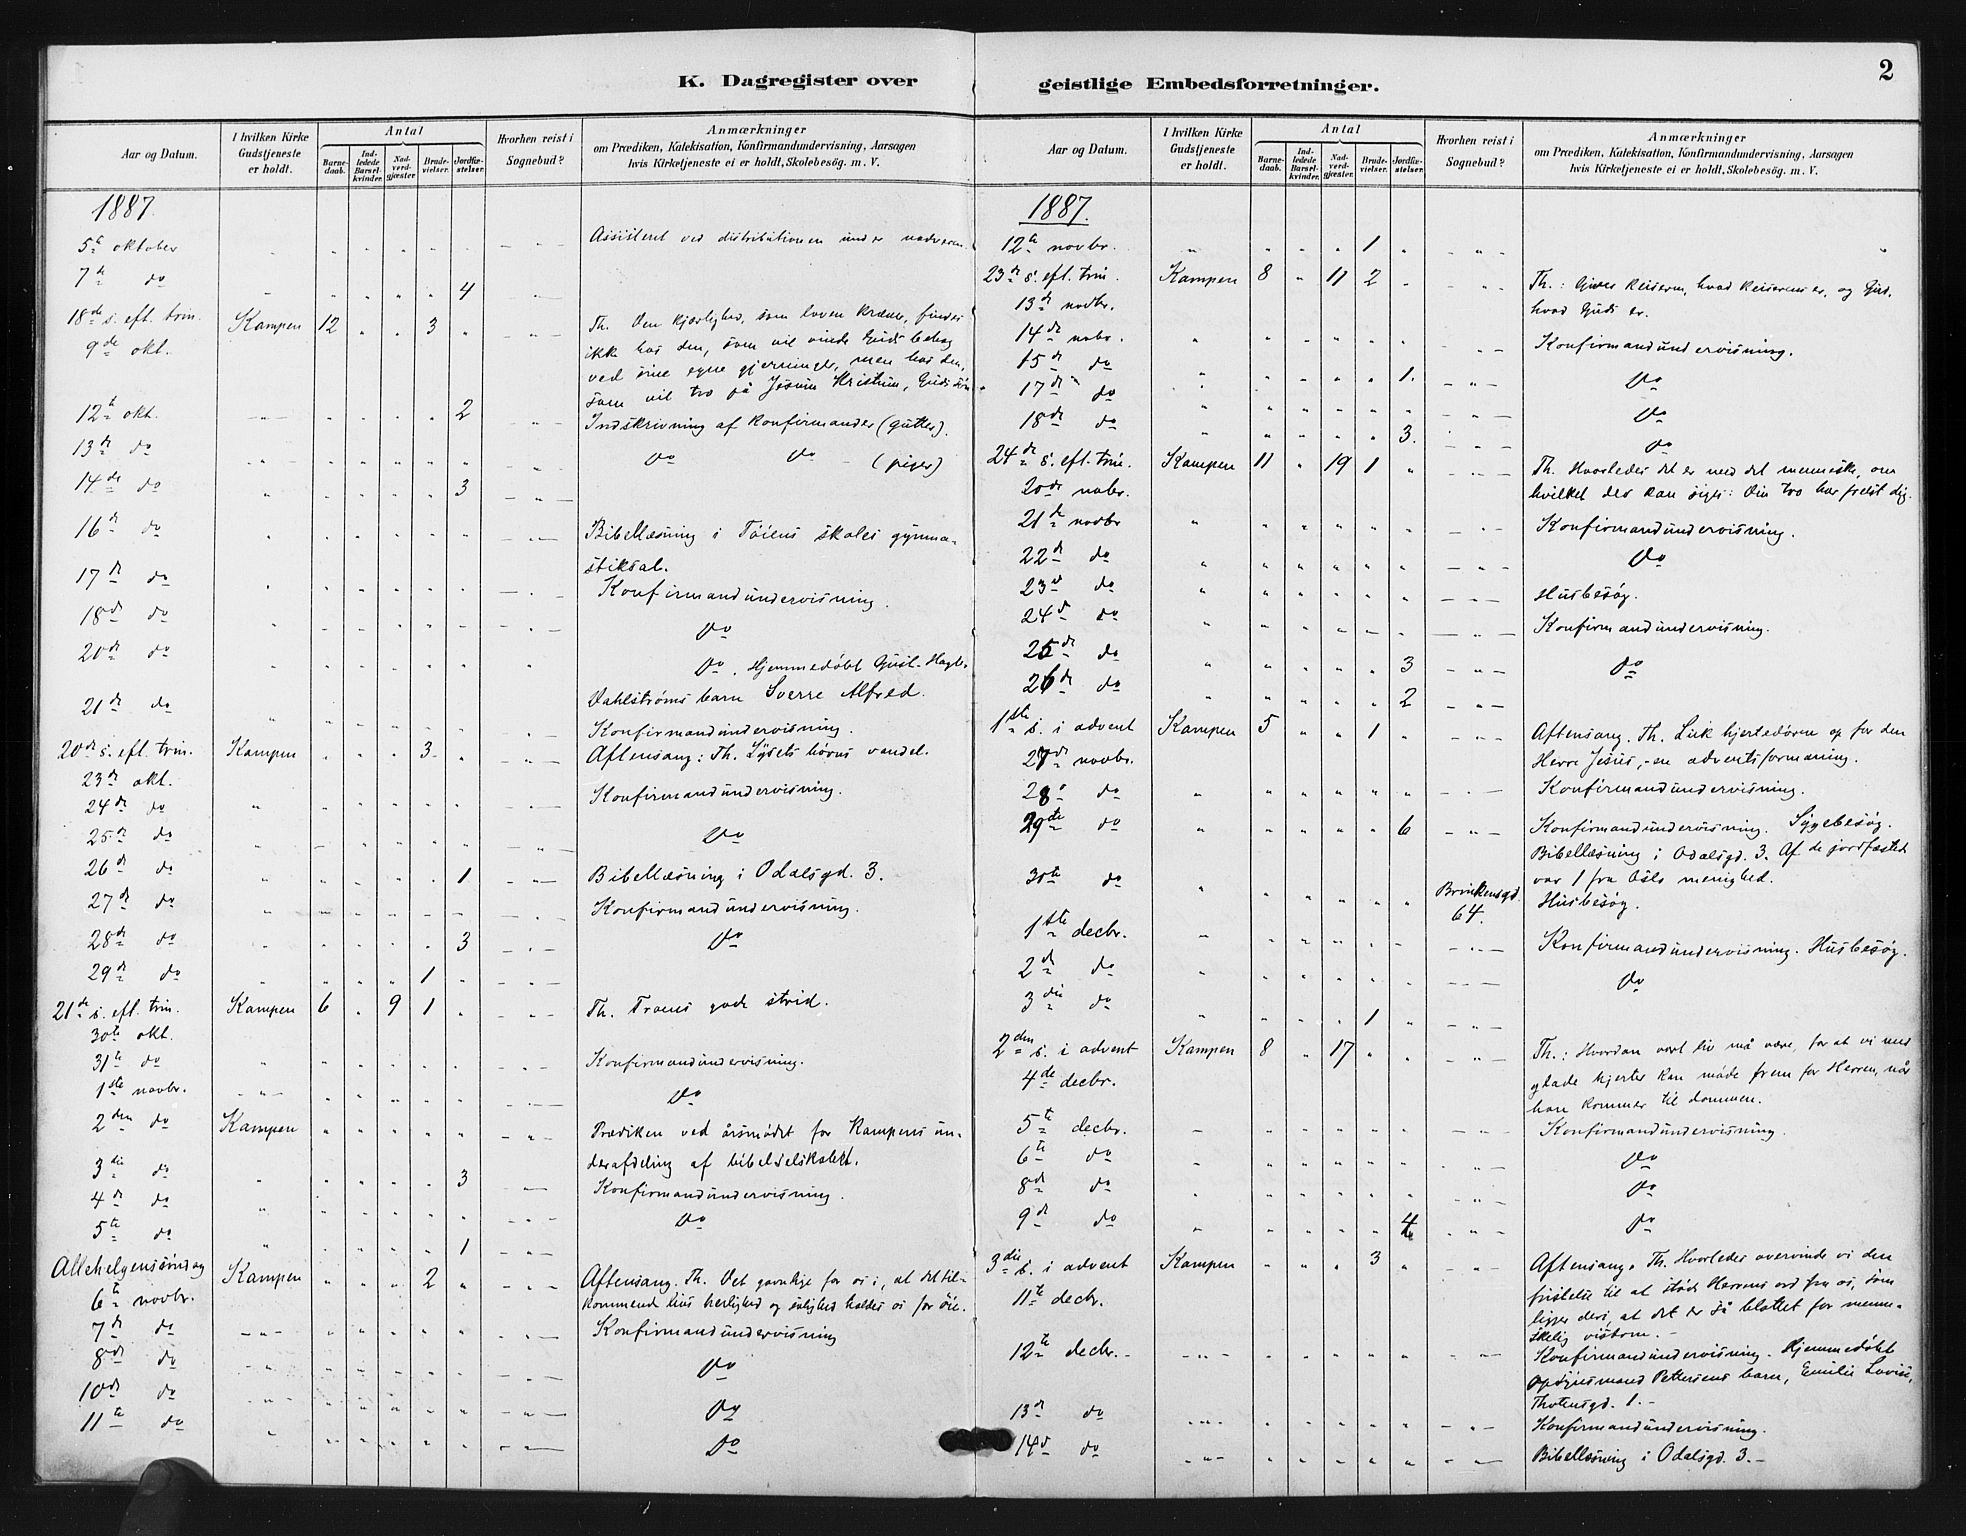 K. Dagregister over geistlige Embedsforretninger.
2
Aar og Datum.
I hvilken Kirke Gudstjeneste er holdt.
Antal
Barne-daab.
Ind-ledede Barsel-kvinder.
Nad-verd-gjæster.
Brude-vielser.
Jordfæ-stelser.
Hvorhen reist i Sognebud?
Anmærkninger
om Prædiken, Katekisation, Konfirmandundervisning, Aarsagen
hvis Kirketjeneste ei er holdt, Skolebesög. m. V.
1887
5te oktober " " " " " " " Assisteret ved distributionen under nadveren.
7de do 4
18de s. eft. trin. Kampen 12 " " 3 " Th. Den kjærlighed, som loven kræver, findes
9de okt. ikke hos den, som vil vinde Guds behag
ved sine egne gjerninger, men hos den,
som vil tro på Jesum Kristum, Guds søn.
12te okt. 2 Indskrivning af konfirmander (gutter).
13de do do do (piger)
14de do 3
16de do Bibellæsning i Tøiens skoles gymna-
stiksal.
17de do Konfirmandundervisning.
18de do do
20de do do. Hjemmedøbt Gust. Hagb.
Dahlstrøms barn Sverre Alfred.
21de do Konfirmandundervisning.
20de s. eft. trin. Kampen 3 Aftensang: Th. Lysets børns vandel.
23de okt.
24de do Konfirmandundervisning.
25de do do
26de do 1 Bibellæsning i Odalsgd. 3.
27de do Konfirmandundervisning.
28de do 3 do
29de do 1
21de s. eft. trin. Kampen 6 " 9 1 Th. Troens gode strid.
30te okt.
31te do Konfirmandundervisning.
1ste novbr. do
2den do Kampen Prædiken ved årsmødet for Kampens un-
derafdeling af bibelselskabet.
3die do 3 Konfirmandundervisning.
4de do do
5te do 1
Allehelgensøndag Kampen 2 Aftensang. Th. Det gavnlige for os i, at det til-
6te novbr. kommende livs herlighed og salighed holdes os for øie.
7de do Konfirmandundervisning
8de do do
10de do do
11te do do
Aar og Datum.
I hvilken Kirke Gudstjeneste er holdt.
Antal
Barne-daab.
Ind-ledede Barsel-kvinder.
Nad-verd-gjæster.
Brude-vielser.
Jordfæ-stelser.
Hvorhen reist i Sognebud?
Anmærkninger
om Prædiken, Katekisation, Konfirmandundervisning, Aarsagen
hvis Kirketjeneste ei er holdt, Skolebesög. m. V.
1887.
12te novbr. 1
23de s. eft. trin. Kampen 8 " 11 2 Th.: Giver Keiseren, hvad Keiserens er, og Gud,
13de novbr. hvad Guds er.
14de nobr. Konfirmandundervisning.
15de do 1. do
17de do do
18de do 3. do
24de s. eft. trin. Kampen 11 " 19 1 Th. Hvorledes det er med det menneske, om
20de nobr. hvilket der kan siges: Din tro har frelst dig.
21de novbr Konfirmandundervisning.
22de do do
23de do Husbesøg.
24de do Konfirmandundervisning.
25de do 3 do
26de do 2
1ste s. i advent Kampen 5 " " 1 Aftensang. Th. Luk hjertedøren op for den
27de novbr. Herre Jesus, - en adventsformaning.
28de do Konfirmandundervisning.
29de do 6 Konfirmandundervisning. Sygebesøg.
Bibellæsning i Odalsgd. 3. Af de jordfæstede
var 1 fra Oslo menighed.
30te do Brinkensgd. 64. Husbesøg.
1ste decbr. Konfirmandundervisning. Husbesøg.
2den do do
3die do 1
2den s. i advent Kampen 8 " 17 Th.: Hvordan vort liv må være, for at vi med
4de decbr. glade hjerter kan møde frem for Herren, når
han kommer til dommen.
5te decbr. Konfirmandundervisning.
6te do do
8de do do
9de do 4 do
3die s. i advent Kampen 3 Aftensang. Th. Hvorledes overvinde vi den
11te decbr. fristelse til at støde Herrens ord fra os, som
ligger deri, at det er så blottet for menne-
skelig visdom. -
12te decbr. Konfirmandundervisning. Hjemmedøbt
Opsynsmand Pettersens barn, Emilie Lovise,
Thotensgd. 1. -
13de do Konfirmandundervisning.
14de do Bibellæsning i Odalsgd. 3. -